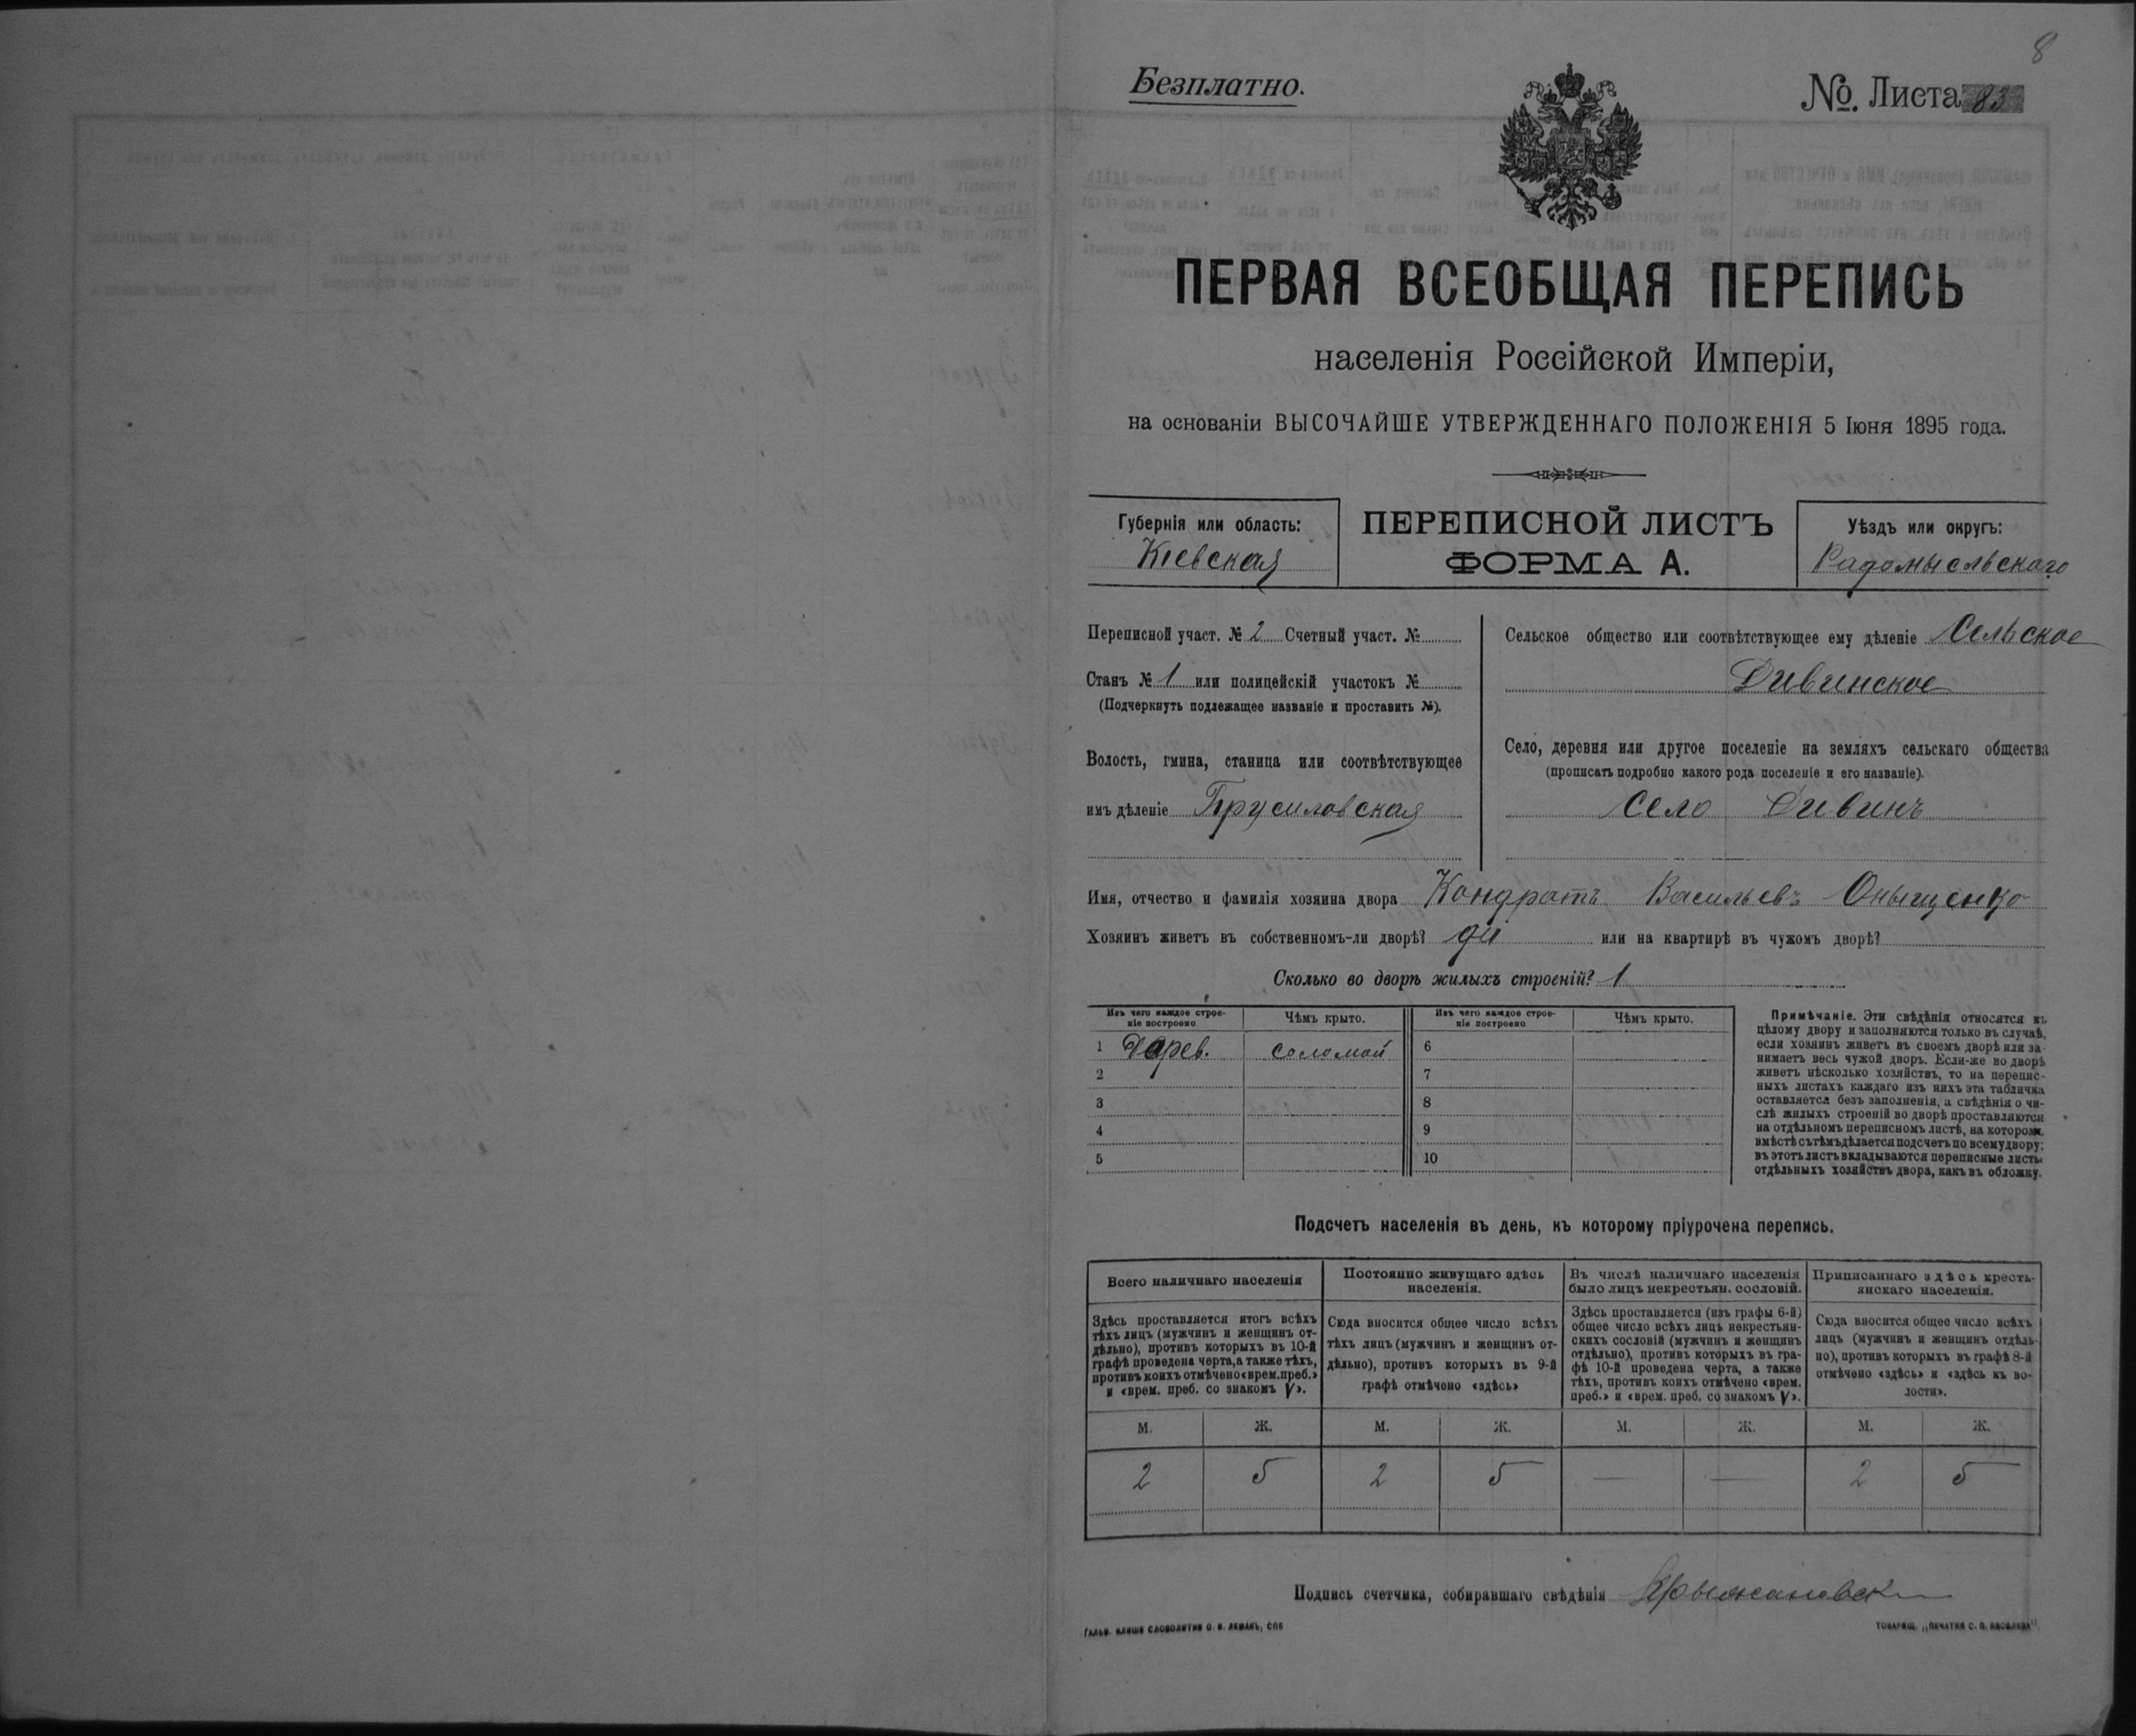 8
Безплатно.
№. Листа 83
ПЕРВАЯ ВСЕОБЩАЯ ПЕРЕПИСЬ
населенія Россійской Имперіи,
на основаніи ВЫСОЧАЙШЕ УТВЕРЖДЕННАГО ПОЛОЖЕНІЯ 5 Іюня 1895 года.
Губернія или область:
Кіевская
ПЕРЕПИСНОЙ ЛИСТЪ
ФОРМА А.
Уѣздъ или округъ:
Радомысльскаго
Переписной участ. № 2 Счетный участ. №
Станъ № 1 или полицейскій участокъ №
(Подчеркнуть подлежащее названіе и проставить №).
Волость, гмина, станица или соотвѣтствующее
имъ дѣленіе Брусиловская
Сельское общество или соотвѣтствующее ему дѣленіе Сельское
Дивинское
Село, деревня или другое поселеніе на земляхъ сельскаго общества
(прописать подробно какого рода поселеніе и его названіе).
Село Дивинъ
Имя, отчество и фамилія хозяина двора Кондратъ Васильевъ Оныщенко
Хозяинъ живетъ въ собственномъ-ли дворѣ? да или на квартирѣ въ чужомъ дворѣ?
Сколько во дворѣ жилыхъ строеній? 1
Изъ чего каждое строе-
ніе построено
Чѣмъ крыто.
Изъ чего каждое строе-
ніе построено
Чѣмъ крыто.
1 Дерев. соломой 6
2 7
3 8
4 9
5 10
Примѣчаніе. Эти свѣдѣнія относятся къ
цѣлому двору и заполняются только въ случаѣ,
если хозяинъ живетъ въ своемъ дворѣ или за-
нимаетъ весь чужой дворъ. Если-же во дворѣ
живетъ нѣсколько хозяйствъ, то на перепис-
ныхъ листахъ каждаго изъ нихъ эта табличка
оставляется безъ заполненія, а свѣдѣнія о чи-
слѣ жилыхъ строеній во дворѣ проставляются
на отдѣльномъ переписномъ листѣ, на которомъ
вмѣстѣ съ тѣмъ дѣлается подсчетъ по всему двору;
въ этотъ листъ вкладываются переписные листы
отдѣльныхъ хозяйствъ двора, какъ въ обложку.
Подсчетъ населенія въ день, къ которому пріурочена перепись.
Всего наличнаго населенія
Здѣсь проставляется итогъ всѣхъ
тѣхъ лицъ (мужчинъ и женщинъ от-
дѣльно), противъ которыхъ въ 10-й
графѣ проведена черта, а также тѣхъ,
противъ коихъ отмѣчено «врем. преб.»
и «врем. преб. со знакомъ V».
Постоянно живущаго здѣсь
населенія.
Сюда вносится общее число всѣхъ
тѣхъ лицъ (мужчинъ и женщинъ от-
дѣльно), противъ которыхъ въ 9-й
графѣ отмѣчено «здѣсь»
Въ числѣ наличнаго населенія
было лицъ некрестьян. сословій.
Здѣсь проставляется (изъ графы 6-й)
общее число всѣхъ лицъ некрестьян-
скихъ сословій (мужчинъ и женщинъ
отдѣльно), противъ которыхъ въ гра-
фѣ 10-й проведена черта, а также
тѣхъ, противъ коихъ отмѣчено «врем.
преб.» и «врем. преб. со знакомъ V».
Приписаннаго здѣсь кресть-
янскаго населенія.
Сюда вносится общее число всѣхъ
лицъ (мужчинъ и женщинъ отдѣль-
но), противъ которыхъ въ графѣ 8-й
отмѣчено «здѣсь» и «здѣсь къ во-
лости».
М. Ж. М. Ж. М. Ж. М. Ж.
2 5 2 5 — — 2 5
Подпись счетчика, собиравшаго свѣдѣнія Крыжановск
ГАЛЬВ. КЛИШЕ СЛОВОЛИТНИ О. И. ЛЕМАНЪ, СПБ
ТОВАРИЩ. „ПЕЧАТНЯ С. П. ЯКОВЛЕВА"